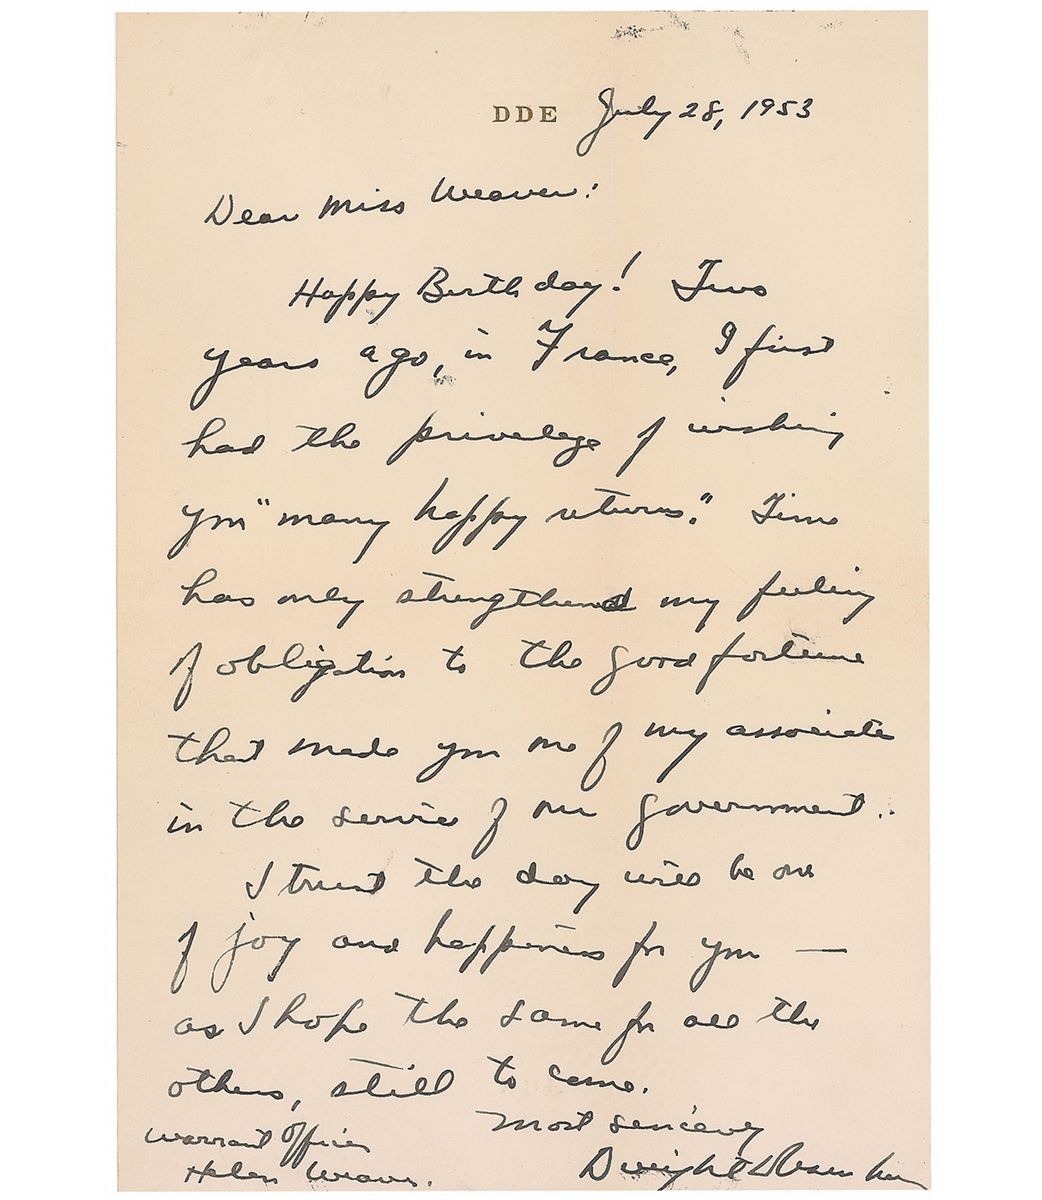 DDE July 28, 1953
Dear Miss Weaver:
Happy Birthday! Two
years ago, in France, I first
had the privelege of wishing
you "many happy returns." Time
has only strengthened my feeling
of obligation to the good fortune
that made you one of my associates
in the service of our government.
I trust the day will be one
of joy and happiness for you —
as I hope the same for all the
others, still to come.
Most sincerely
Dwight D Eisenhower
Warrant Officer
Helen Weaver.